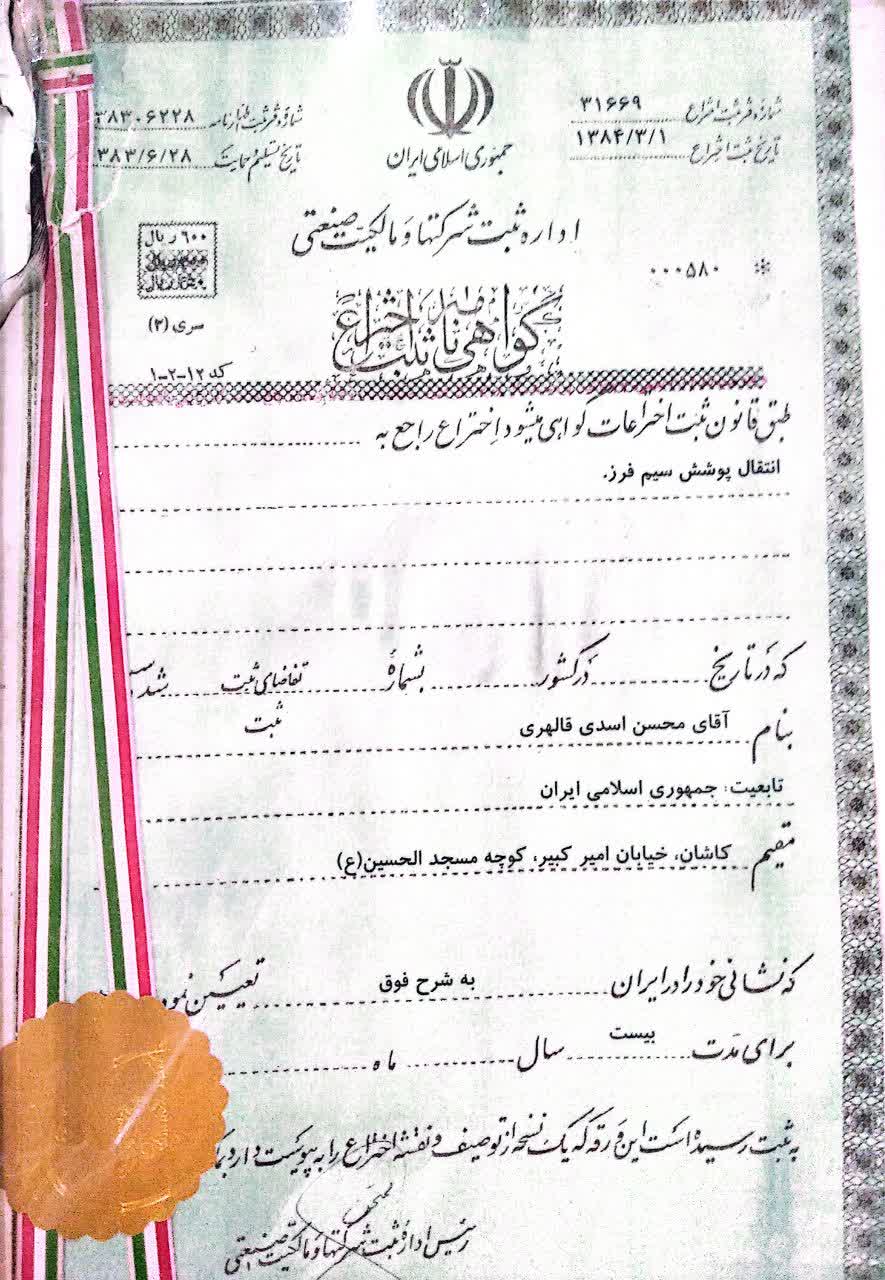 شماره ثبت اختراع ۳۱۶۶۹
تاریخ ثبت اختراع ۱۳۸۴/۳/۱
جمهوری اسلامی ایران
شماره ثبت اظهارنامه ۳۸۳۰۶۲۲۸
تاریخ تسلیم و حمایت ۳۸۳/۶/۲۸
اداره ثبت شرکتها و مالکیت صنعتی
۰۰۰۵۸۰
۶۰۰ ریال
سری (۳)
کد ۱۲-۲-۱
گواهی نامه ثبت اختراع
طبق قانون ثبت اختراعات گواهی میشود اختراع راجع به
انتقال پوشش سیم فرز.
که در تاریخ در کشور بشماره تقاضای ثبت شده
ثبت
بنام آقای محسن اسدی قالهری
تابعیت: جمهوری اسلامی ایران
مقیم کاشان، خیابان امیر کبیر، کوچه مسجد الحسین(ع)
که نشانی خود را در ایران به شرح فوق تعیین نمود
برای مدت بیست سال ماه
به ثبت رسیده است این ورقه که یک نسخه از توصیف و نقشه اختراع را به پیوست دارد
رئیس اداره ثبت شرکتها و مالکیت صنعتی